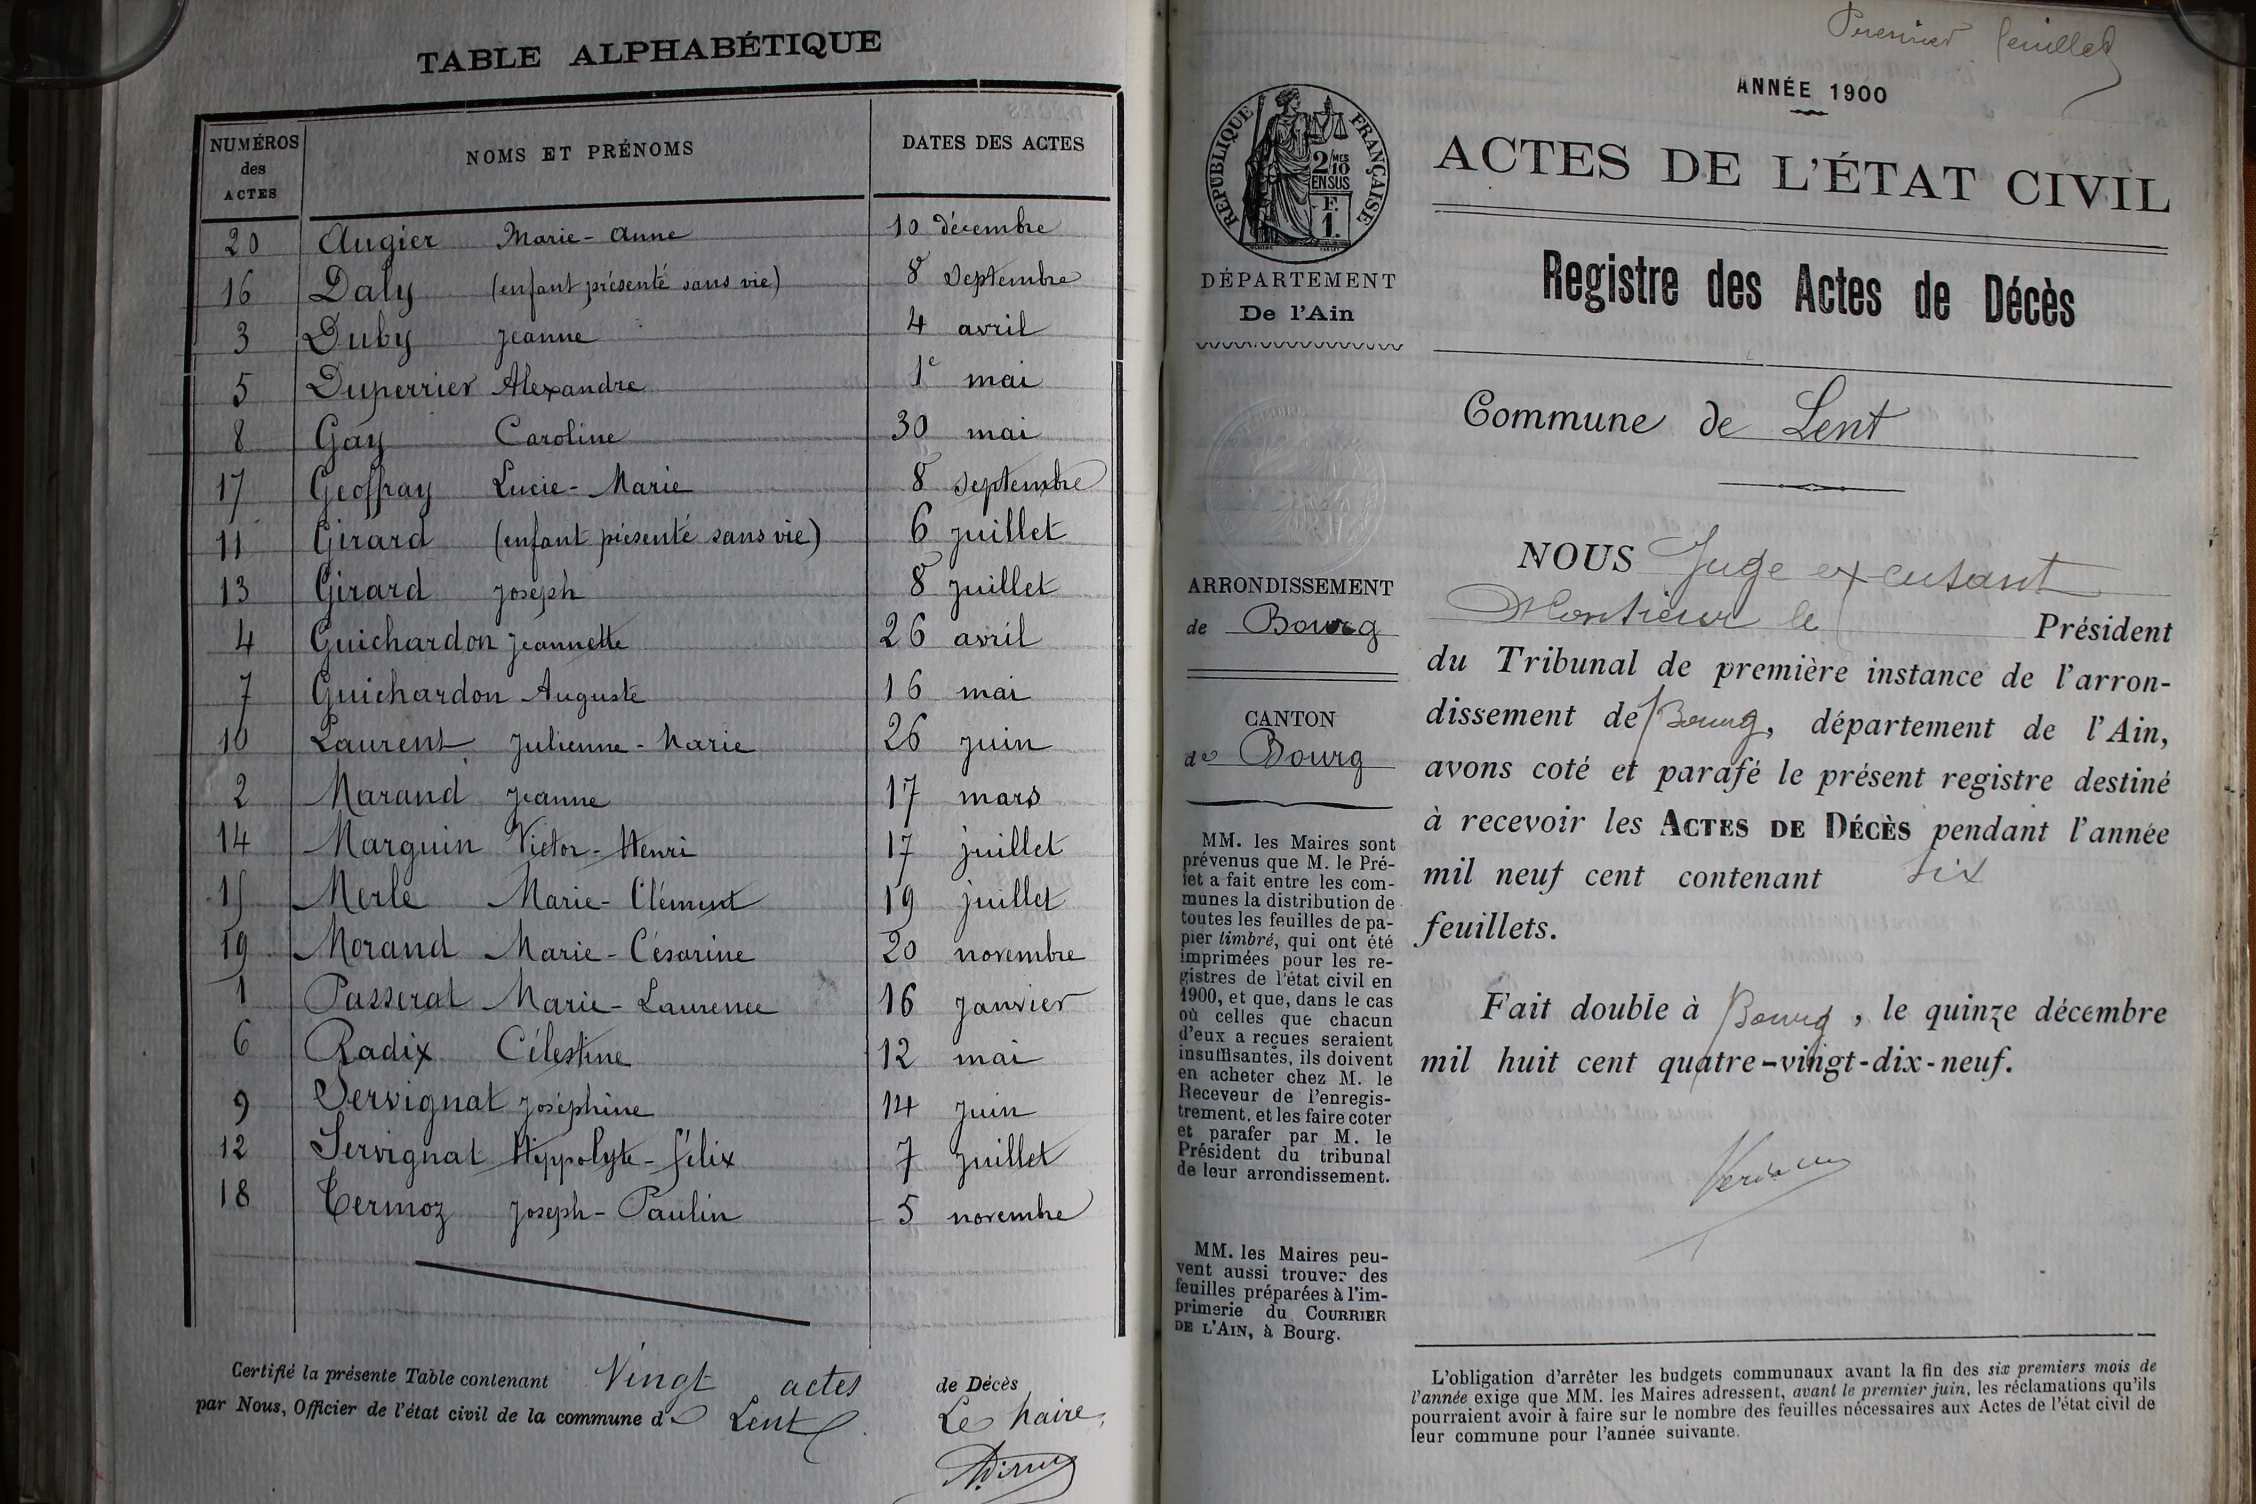 TABLE ALPHABÉTIQUE
NUMÉROS des ACTES NOMS ET PRÉNOMS DATES DES ACTES
20 Augier Marie-Anne 10 décembre
16 Daly (enfant présenté sans vie) 8 septembre
3 Duby Jeanne 4 avril
5 Duperrier Alexandre 1e mai
8 Gay Caroline 30 mai
17 Geoffray Lucie-Marie 8 septembre
11 Girard (enfant présenté sans vie) 6 juillet
13 Girard Joseph 8 juillet
4 Guichardon Jeannette 26 avril
7 Guichardon Auguste 16 mai
10 Laurent Julienne-Marie 26 juin
2 Marand Jeanne 17 mars
14 Marguin Victor-Henri 17 juillet
15 Merle Marie-Clément 19 juillet
19 Morand Marie-Césarine 20 novembre
1 Passerat Marie-Laurence 16 janvier
6 Radix Célestine 12 mai
9 Servignat Joséphine 14 juin
12 Servignat Hippolyte-Félix 7 juillet
18 Termoz Joseph-Paulin 5 novembre
Certifié la présente Table contenant Vingt actes de Décès
par Nous, Officier de l'état civil de la commune de Lent Le Maire,
Premier feuillet
ANNÉE 1900
RÉPUBLIQUE FRANÇAISE
2/10MES
EN SUS
F.
1.
DÉPARTEMENT
De l'Ain
ARRONDISSEMENT
de Bourg
CANTON
de Bourg
MM. les Maires sont
prévenus que M. le Pré-
fet a fait entre les com-
munes la distribution de
toutes les feuilles de pa-
pier timbré, qui ont été
imprimées pour les re-
gistres de l'état civil en
1900, et que, dans le cas
où celles que chacun
d'eux a reçues seraient
insuffisantes, ils doivent
en acheter chez M. le
Receveur de l'enregis-
trement, et les faire coter
et parafer par M. le
Président du tribunal
de leur arrondissement.
MM. les Maires peu-
vent aussi trouver des
feuilles préparées à l'im-
primerie du COURRIER
DE L'AIN, à Bourg.
ACTES DE L'ÉTAT CIVIL
Registre des Actes de Décès
Commune de Lent
NOUS Juge excusant
Monsieur le Président
du Tribunal de première instance de l'arron-
dissement de Bourg, département de l'Ain,
avons coté et parafé le présent registre destiné
à recevoir les ACTES DE DÉCÈS pendant l'année
mil neuf cent contenant six
feuillets.
Fait double à Bourg, le quinze décembre
mil huit cent quatre-vingt-dix-neuf.
L'obligation d'arrêter les budgets communaux avant la fin des six premiers mois de
l'année exige que MM. les Maires adressent, avant le premier juin, les réclamations qu'ils
pourraient avoir à faire sur le nombre des feuilles nécessaires aux Actes de l'état civil de
leur commune pour l'année suivante.